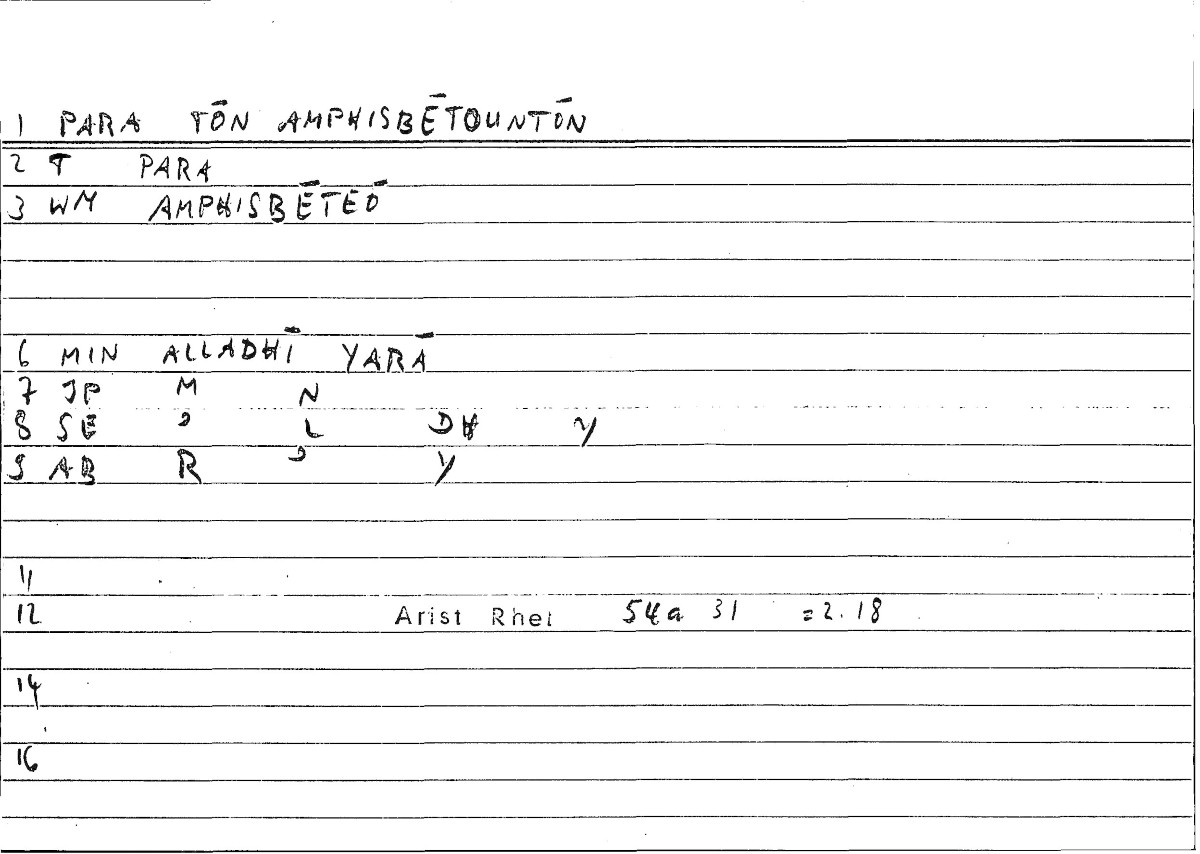 1 PARA TŌN AMPHISBĒTOUNTŌN
2 T PARA
3 WM AMPHISBĒTEŌ
6 MIN ALLADHĪ YARĀ
7 JP M N
8 SE ʾ L DH Y
9 AB R ʾ Y
11
12 Arist Rhet 54a 31 =2.18
14
16